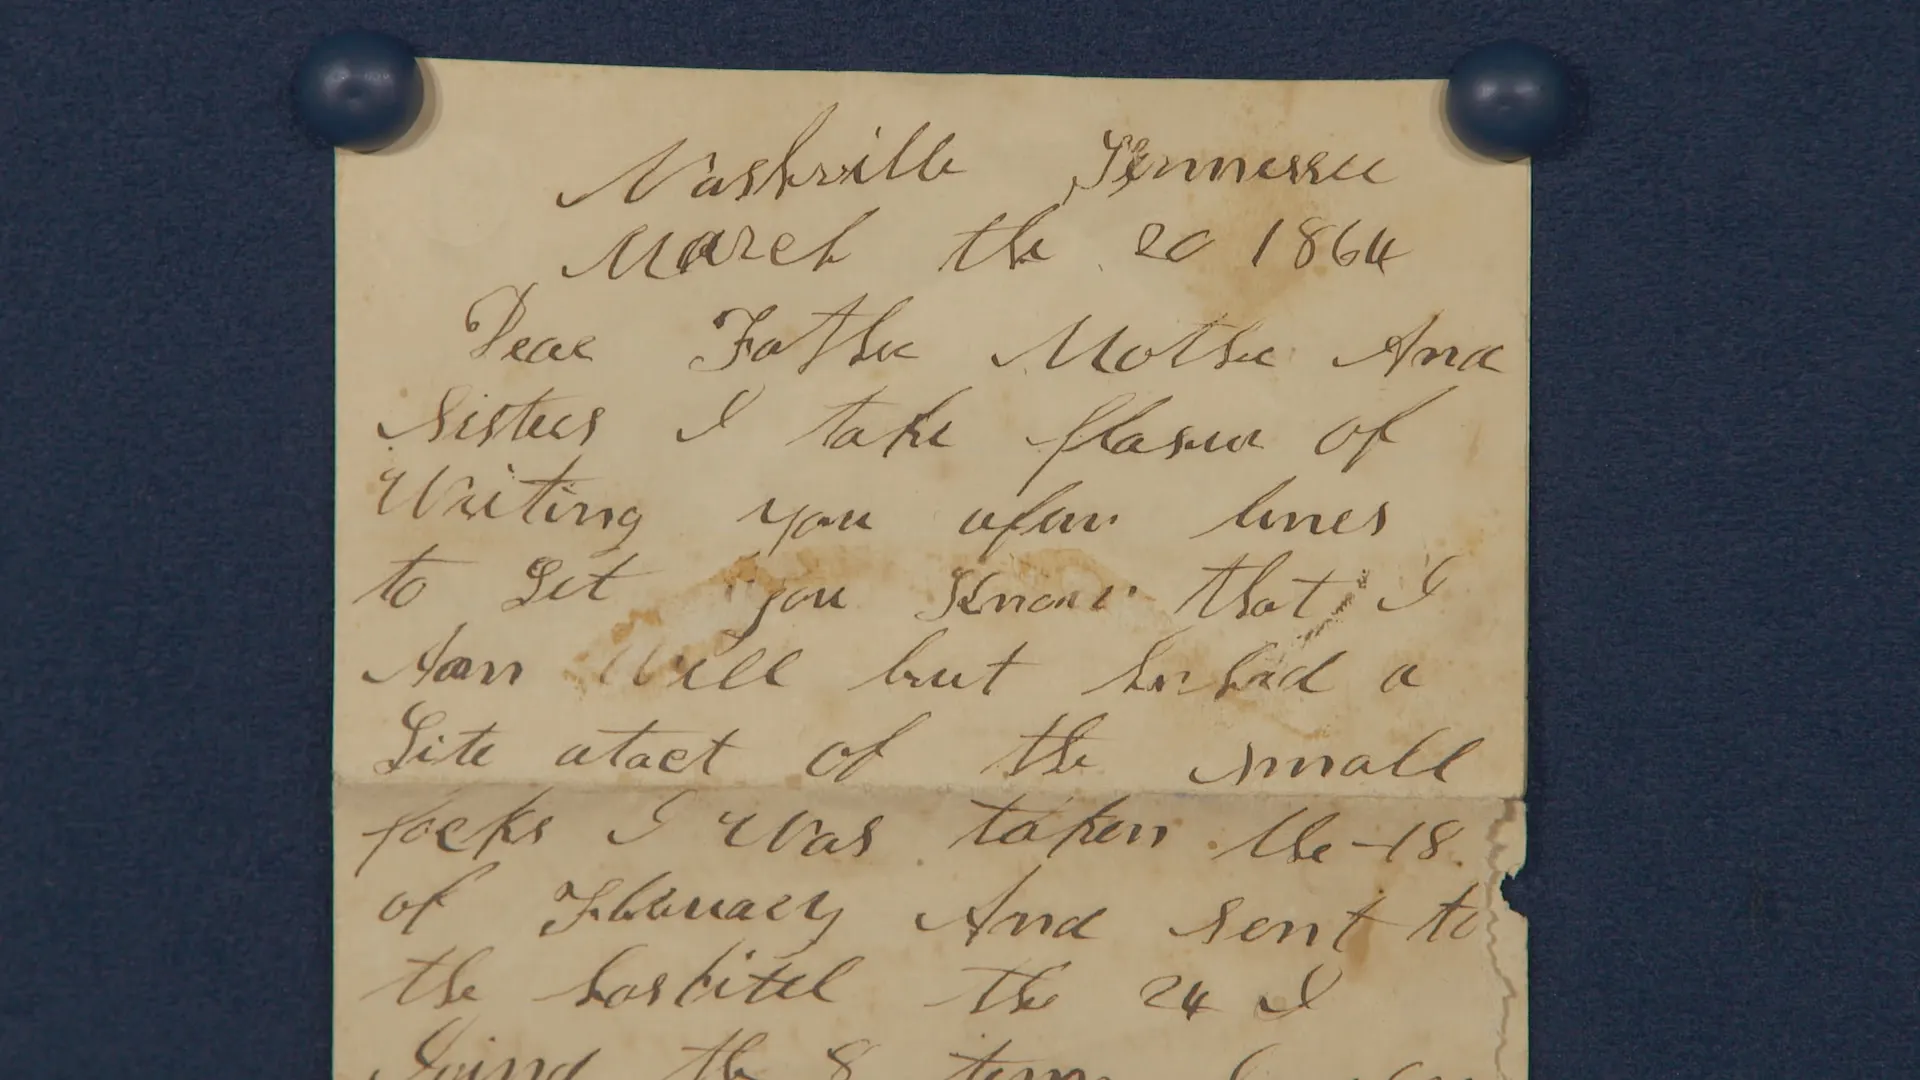 Nashville Tennessee
March the 20 1864
Dear Father Mother And
Sisters I take plasur of
Writing you afew lines
to Let you Know that I
Am Well but hav had a
Lite atact of the small
pocks I was taken the 18
of Februaery And sent to
the hospitel the 24 I
Joind the 8